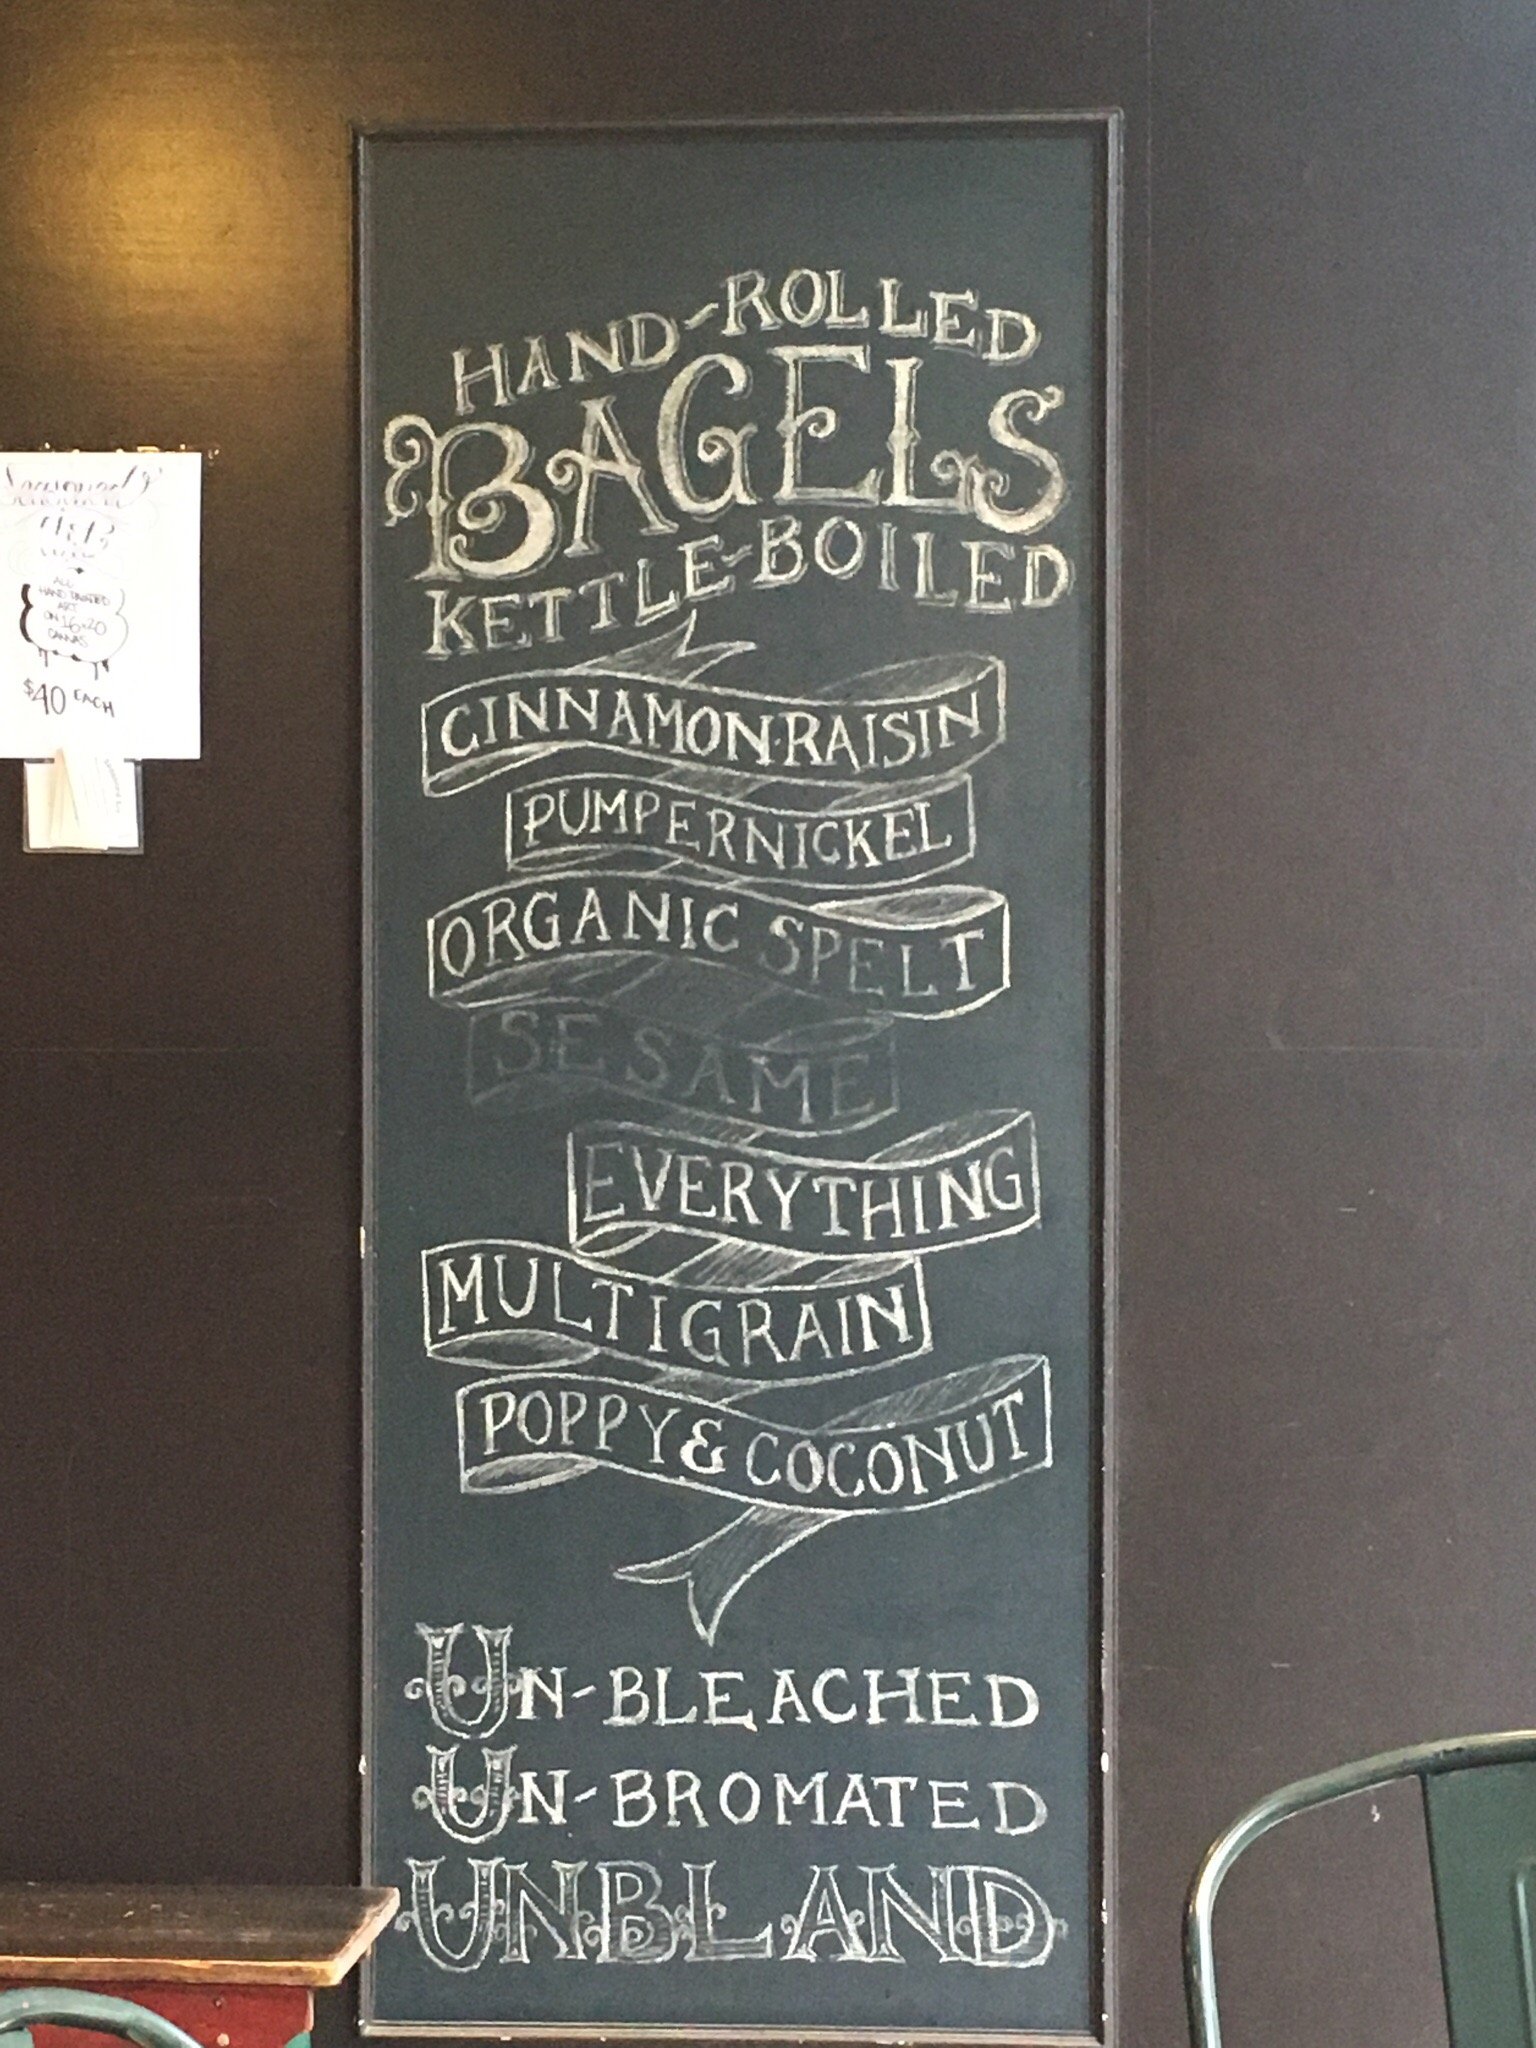 HAND-ROLLED
BAGELS
KETTLE-BOILED
CINNAMON·RAISIN
PUMPERNICKEL
ORGANIC SPELT
SESAME
EVERYTHING
MULTIGRAIN
POPPY & COCONUT
UN-BLEACHED
UN-BROMATED
UNBLAND
ALL
HAND PAINTED
ART
ON 16x20
CANVAS
$40 EACH